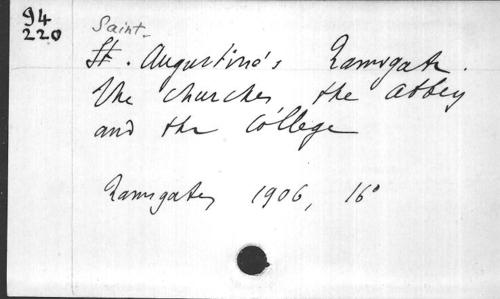 94
220
Saint-
St. Augustine's Ramsgate.
The churches the abbey
and the college
Ramsgate, 1906, 16°